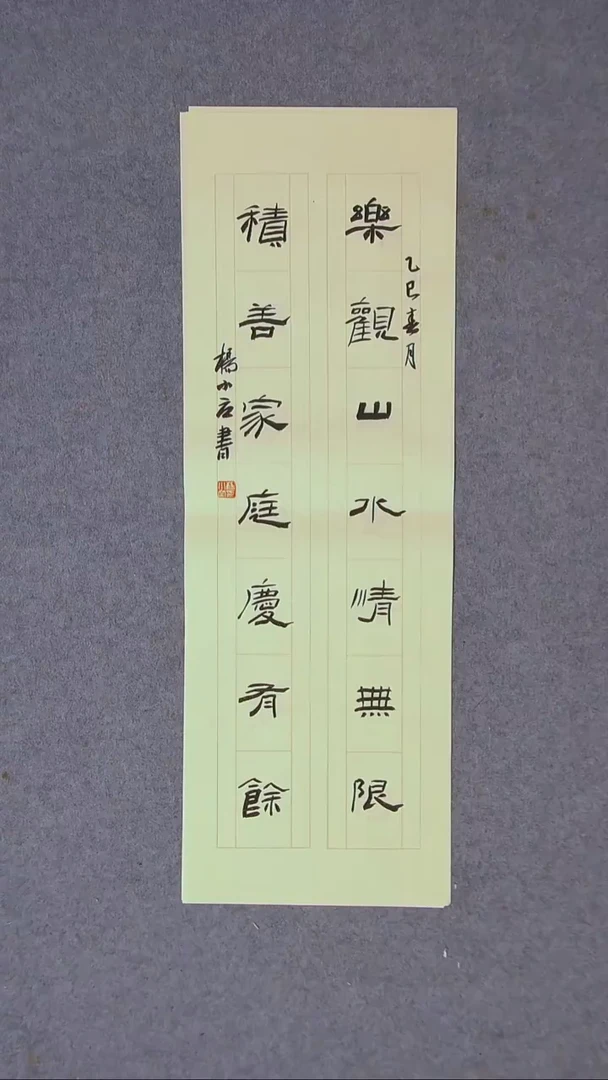 樂觀山水情無限
乙巳春月
積善家庭慶有餘
楊小石書